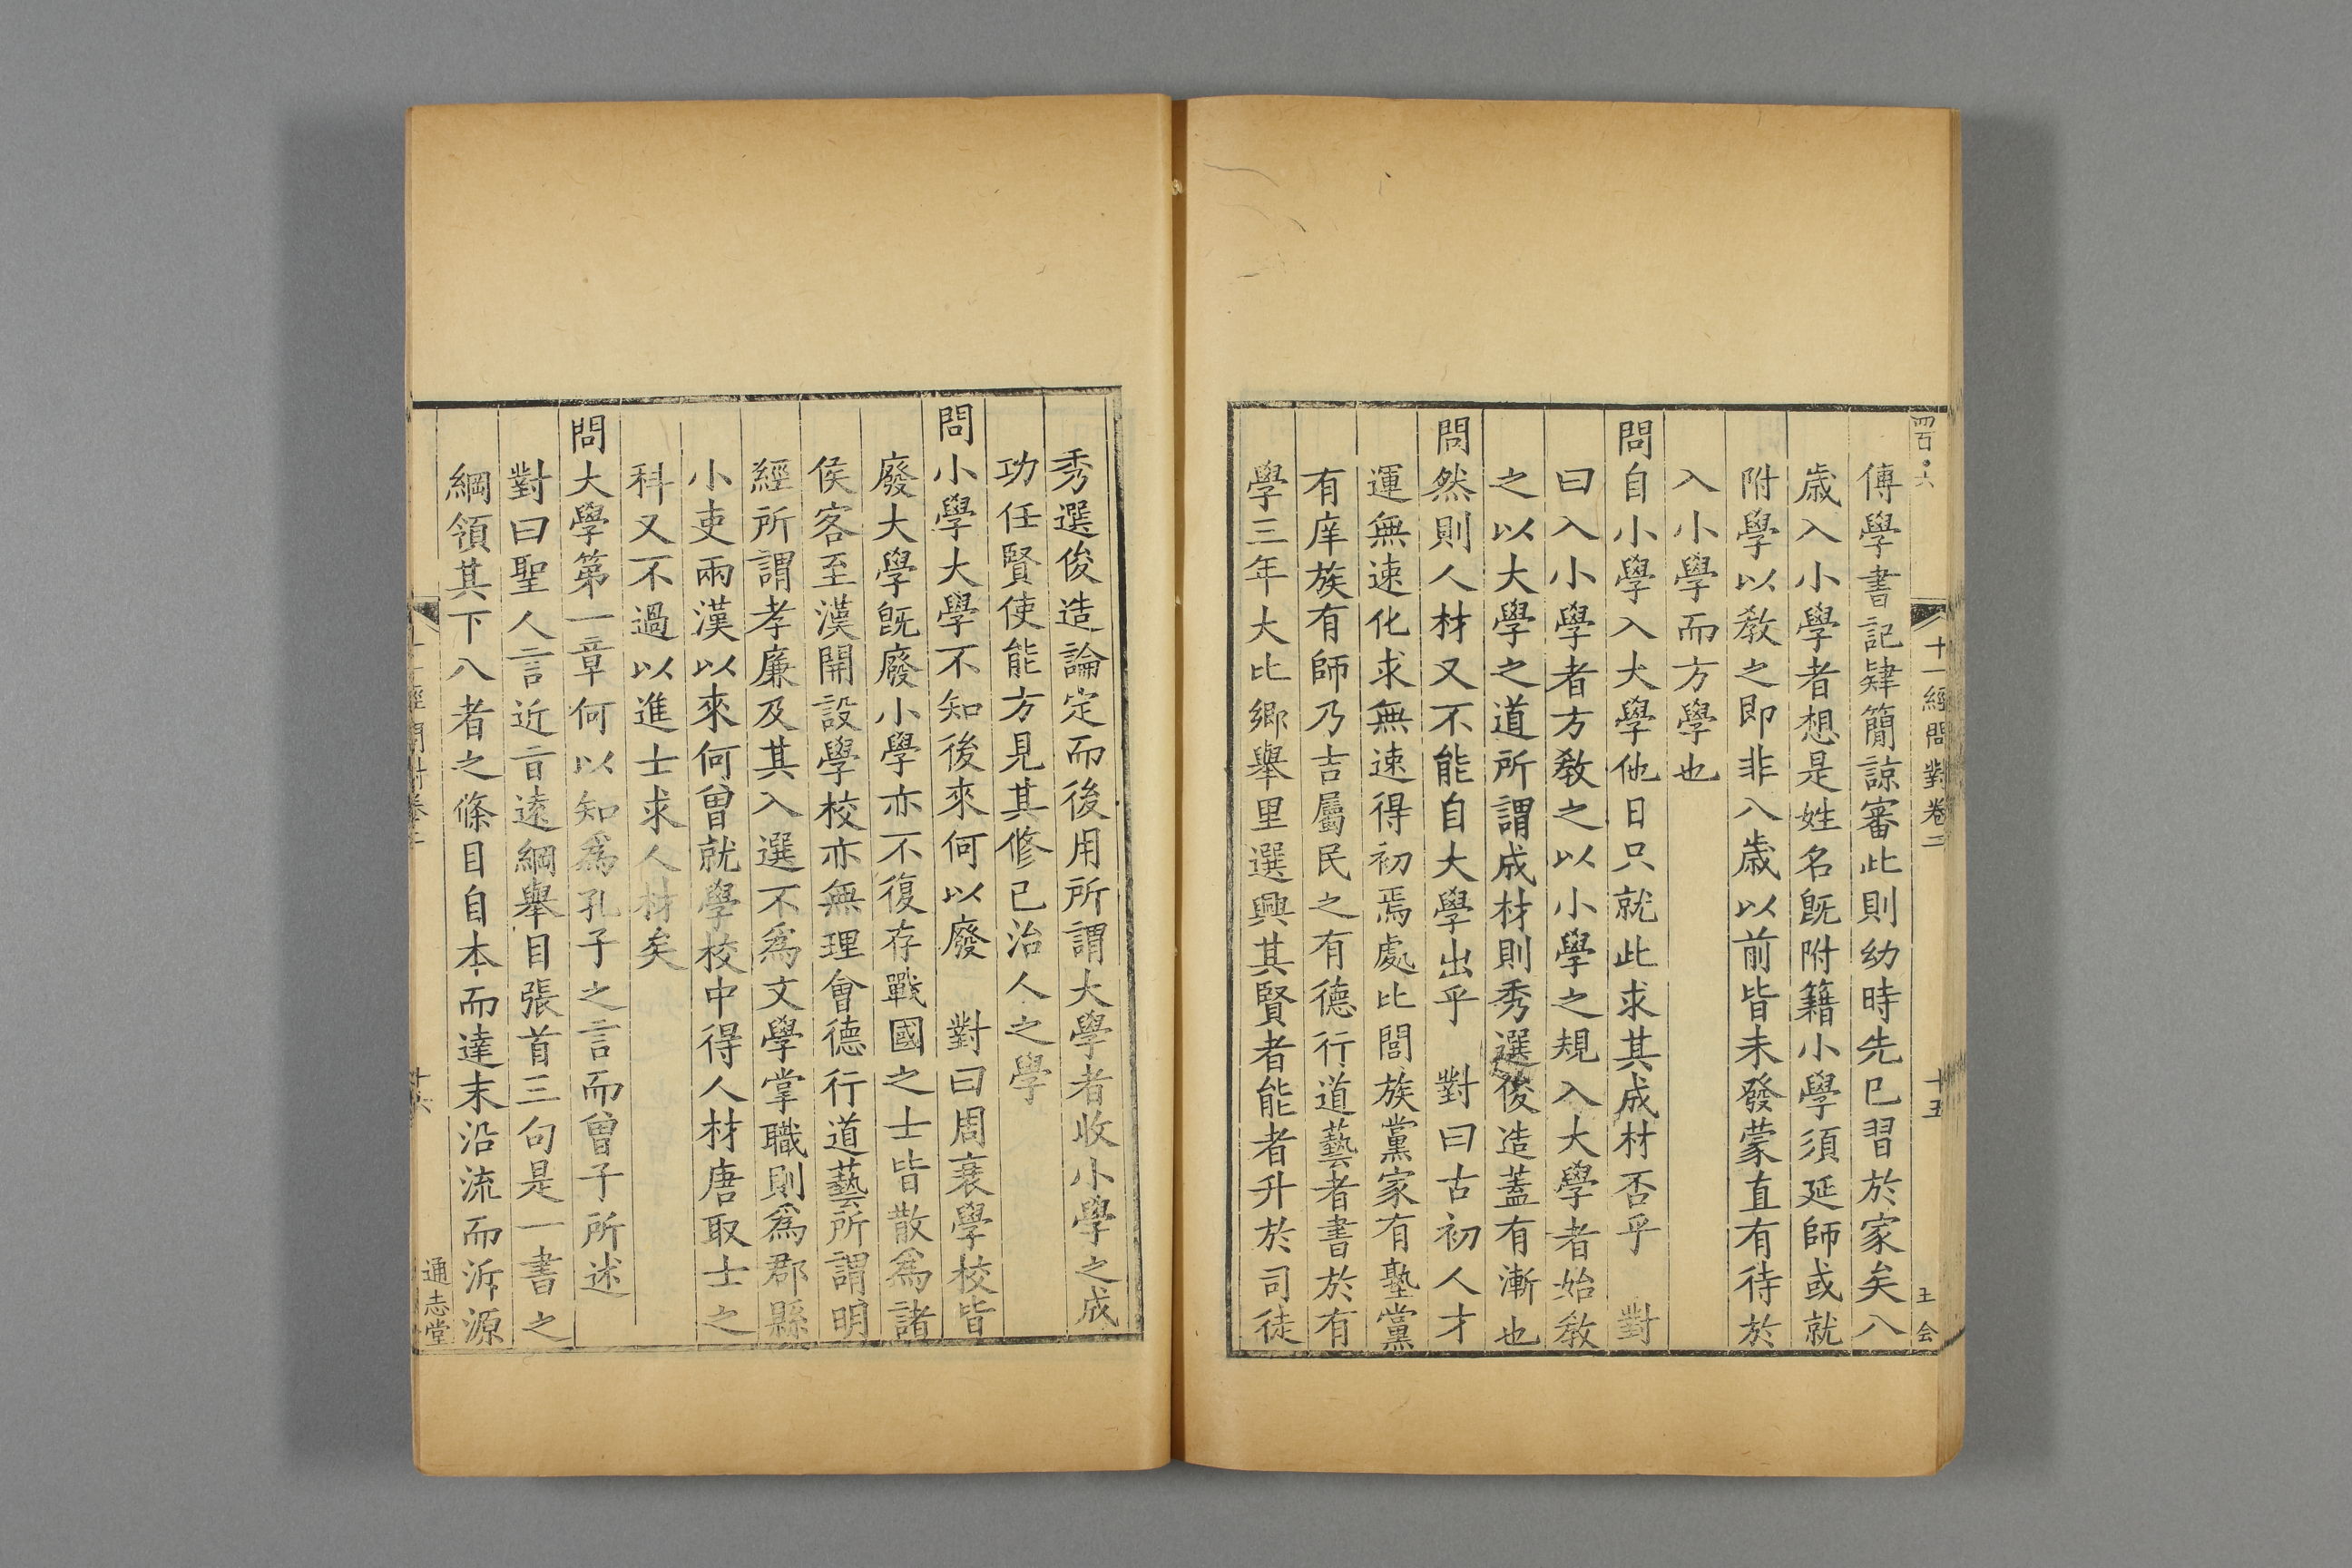 四百六
十一經問對卷三
十五
王会
傅學書記肄簡諒審此則幼時先已習於家矣八
歲入小學者想是姓名旣附籍小學須延師或就
附學以敎之即非八歲以前皆未發蒙直有待於
入小學而方學也
問自小學入大學他日只就此求其成材否乎 對
曰入小學者方敎之以小學之規入大學者始敎
之以大學之道所謂成材則秀選後造蓋有漸也
問然則人材又不能自大學出乎 對曰古初人才
運無速化求無速得初焉處比閭族黨家有塾黨
有庠族有師乃吉屬民之有德行道藝者書於有
學三年大比鄉舉里選興其賢者能者升於司徒
秀選俊造論定而後用所謂大學者收小學之成
功任賢使能方見其修已治人之學
問小學大學不知後來何以廢 對曰周衰學校皆
廢大學旣廢小學亦不復存戰國之士皆散爲諸
侯客至漢開設學校亦無理會德行道藝所謂明
經所謂孝廉及其入選不爲文學掌職則爲郡縣
小吏兩漢以來何曾就學校中得人材唐取士之
科又不過以進士求人材矣
問大學第一章何以知爲孔子之言而曾子所述
對曰聖人言近言遠綱舉目張首三句是一書之
綱領其下八者之條目自本而達末沿流而泝源
十一經問對卷三
十六
通志堂